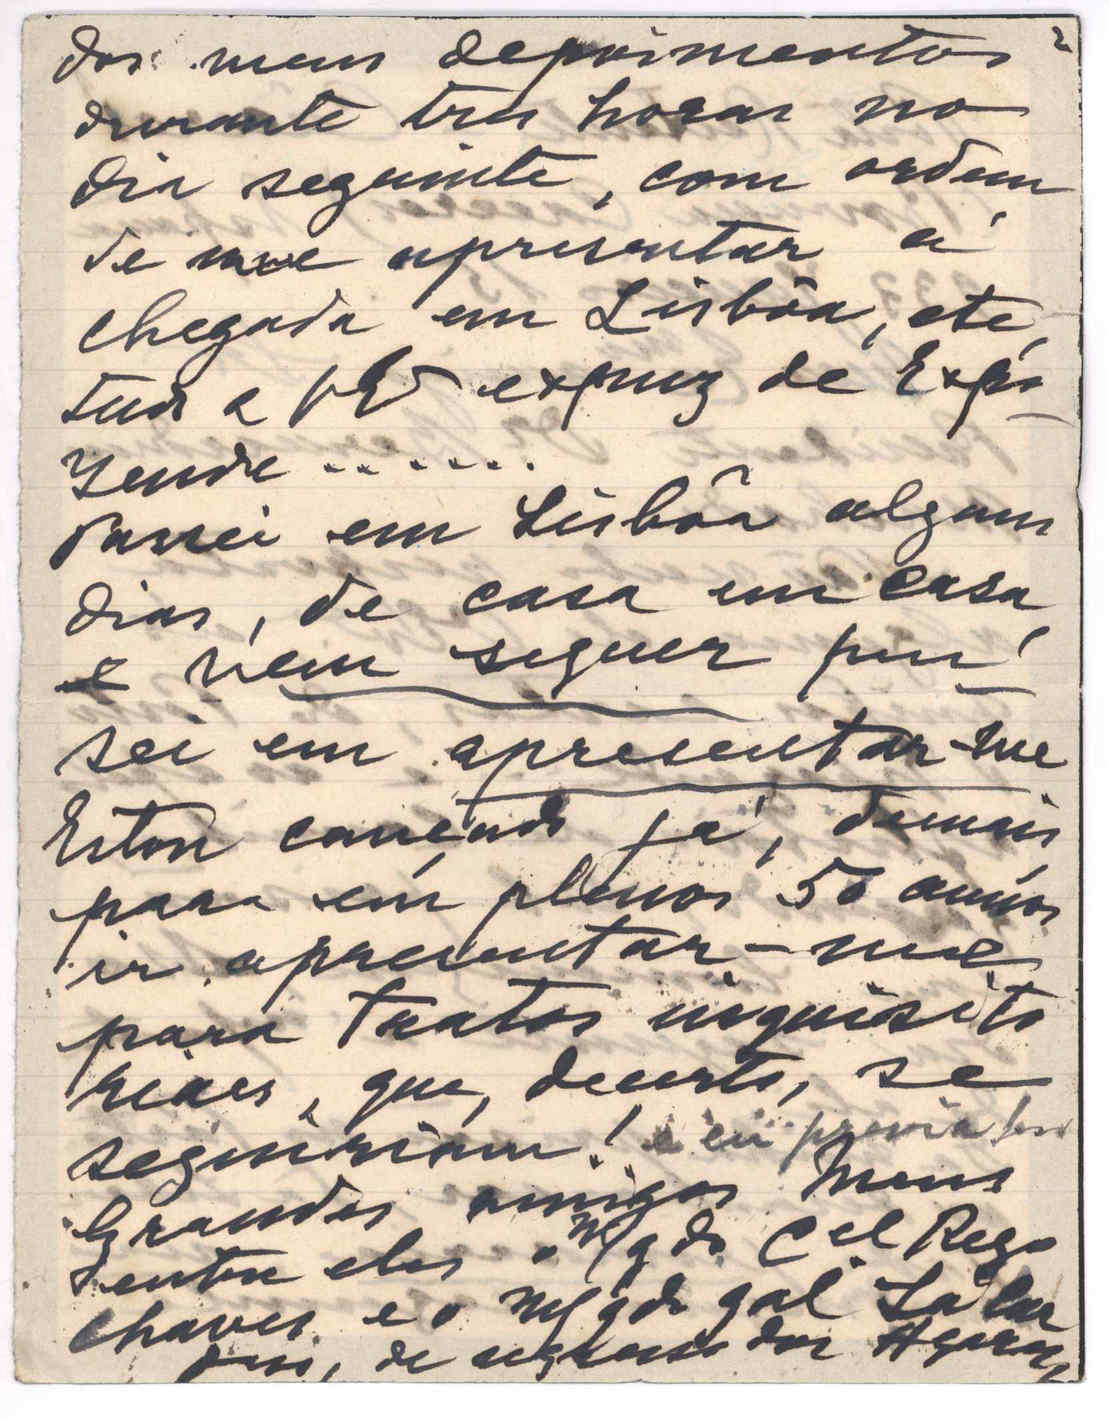 2
dos meus depoimentos
durante tres horas no
dia seguinte, com ordem
de me apresentar á
chegada em Lisbôa, etc,
tudo a V. Exª expuz de Expo
zende ......
Passei em Lisbôa alguns
dias, de casa em casa
e nem sequer pen-
sei em apresentar-me
Estou cançado já, demais
para em plenos 50 annos
ir apresentar-me
para tratos inquisito
riaes, que, decerto, se
seguiriam! e eu previa
Grandes amigos meus
entre elles o Mgdo Cel Rego
Chaves e o Mgdo gal La
de regresso dos Açores,